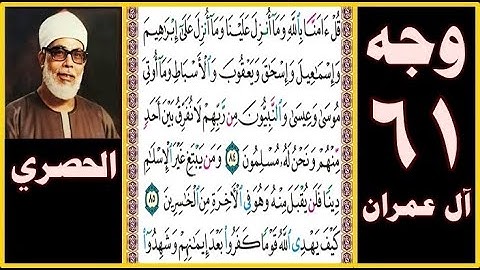 وجه
٦١
آل عمران
قُلْ ءَامَنَّا بِٱللَّهِ وَمَآ أُنزِلَ عَلَيْنَا وَمَآ أُنزِلَ عَلَىٰٓ إِبْرَٰهِيمَ
وَإِسْمَٰعِيلَ وَإِسْحَٰقَ وَيَعْقُوبَ وَٱلْأَسْبَاطِ وَمَآ أُوتِىَ
مُوسَىٰ وَعِيسَىٰ وَٱلنَّبِيُّونَ مِن رَّبِّهِمْ لَا نُفَرِّقُ بَيْنَ أَحَدٍ
مِّنْهُمْ وَنَحْنُ لَهُۥ مُسْلِمُونَ ٨٤ وَمَن يَبْتَغِ غَيْرَ ٱلْإِسْلَٰمِ
دِينًا فَلَن يُقْبَلَ مِنْهُ وَهُوَ فِى ٱلْءَاخِرَةِ مِنَ ٱلْخَٰسِرِينَ ٨٥
كَيْفَ يَهْدِى ٱللَّهُ قَوْمًا كَفَرُوا۟ بَعْدَ إِيمَٰنِهِمْ وَشَهِدُوٓا۟
الحصري